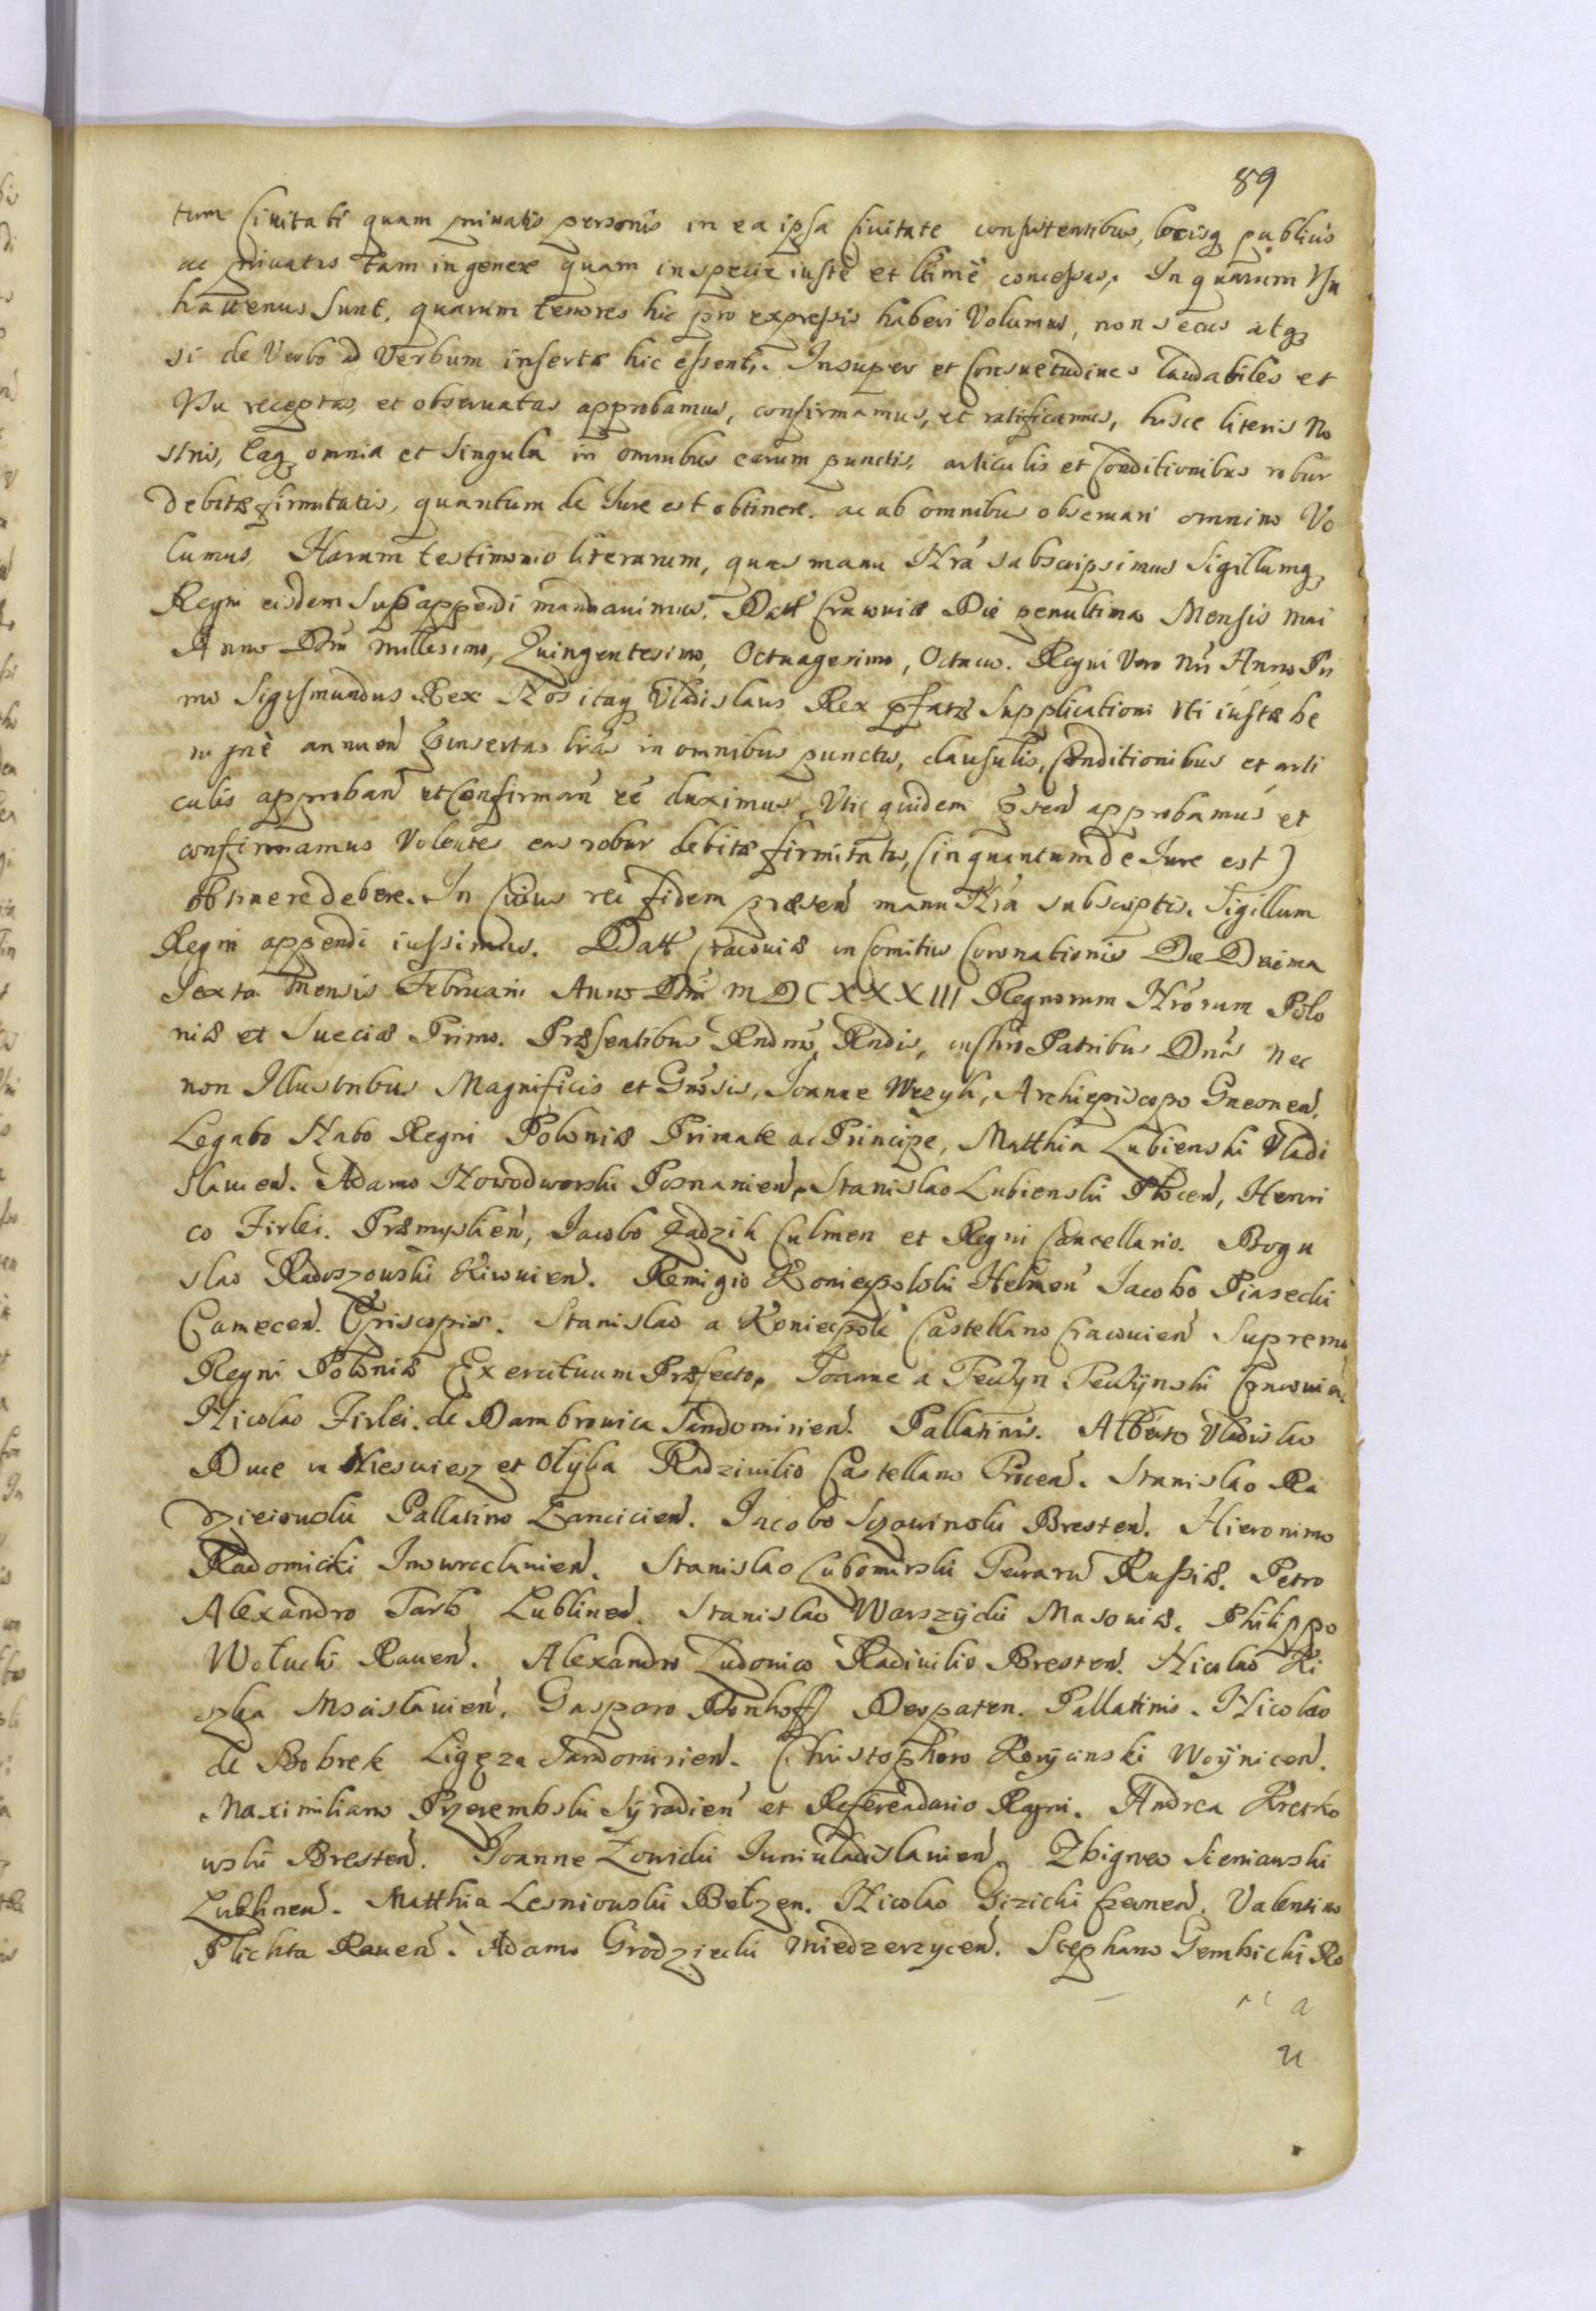 89
tum Ciuitati quam priuatis personis in ea ipsa Ciuitate consistentibus, locisq publicis
ac priuatis tam in genere quam in specie iuste et ltime concessas. In quarum Vsu
hactenus sunt, quarum tenores hic pro expressis haberi Volumus, non secus atq
si de Verbo ad Verbum insertæ hic essent. Insuper et Consuetudines laudabiles et
Vsu receptas et obseruatas approbamus, confirmamus, et ratificamus, hisce literis No
stris, Eaq omnia et singula in omnibus earum punctis, articulis et Conditionibus robur
debitæ firmitatis, quantum de Iure est obtinere. ac ab omnibus obseruari omnino Vo
lumus. Harum testimonio literarum, quas manu Nra subscripsimus Sigillumq
Regni eisdem subappendi mandauimus. Datt Cracouiæ Die penultima Mensis Mai
Anno Dni Millesimo, Quingentesimo, Octuagesimo, Octauo. Regni Vero Nri Anno Pri
mo Sigismundus Rex Nos itaq Vladislaus Rex pfatæ Supplicationi Vti iustæ be
nigne annuen pinsertas lras in omnibus punctis, clausulis, Conditionibus et arti
culis approban et Confirman ee duximus, Vtic quidem psen approbamus et
confirmamus Volentes eas robur debitæ firmitatis, (in quantum de Iure est)
obtinere debere. In Cuius rei fidem præsen manu Nra subscriptis. Sigillum
Regni appendi iussimus. Datt Cracouiæ in Comitiis Coronationis Die Decima
Sexta Mensis Februarii Anno Dni MDCXXXIII Regnorum Nrorum Polo
niæ et Sueciæ Primo. Præsentibus Rndmis, Rndis, in Chro Patribus Dnis Nec
non Illustribus Magnificis et Gnosis, Joanne Wezyk, Archiepiscopo Gnesnen,
Legato Nato Regni Poloniæ Primate ac Principe, Matthia Lubienski Vladi
slauien. Adamo Nowodworski Posnanien, Stanislao Lubienski Plocen, Henri
co Firlei. Præmyslien, Jacobo Zadzik Culmen et Regni Cancellario. Bogu
slao Radoszowski Kiouien. Remigio Koniecpolski Helmen Jacobo Piasecki
Camecen. Episcopis. Stanislao a Koniecpole Castellano Cracouien Supremo
Regni Poloniæ Exercituum Præfecto, Joanne a Teczyn Teczynski Cracouien.
Nicolao Firlei. de Dambrouica Sandomirien. Pallatinis. Alberto Vladislao
Duce in Niesuiesz et Olyka Radziuilio Castellano Trocen. Stanislao Ra
dzieiouski Pallatino Lancicien. Jacobo Szczawinski Bresten. Hieronimo
Radomicki Inowroclauien. Stanislao Lubomirski Terrarum Russiæ. Petro
Alexandro Tarlo Lublinen. Stanislao Warszycki Masouiæ. Philippo
Wołucki Rauen. Alexandro Ludouico Radiuilio Bresten. Nicolao Ki
szka Mscislauien. Gasparo Denhoff Derpaten. Pallatinis. Nicolao
de Bobrek Ligęza Sandomirien. Christophoro Korycinski Woynicen.
Maximiliano Przerembski Syradien et Referendario Regni. Andrea Kretko
wski Bresten. Joanne Lowicki Iuniuladislauien. Zbigneo Sieniawski
Lublinen. Matthia Lesniouski Bełzen. Nicolao Gizicki Czernen. Valentino
Plichta Rauen. Adamo Grodziecki Miedzerzycen. Stephano Gembicki Ro